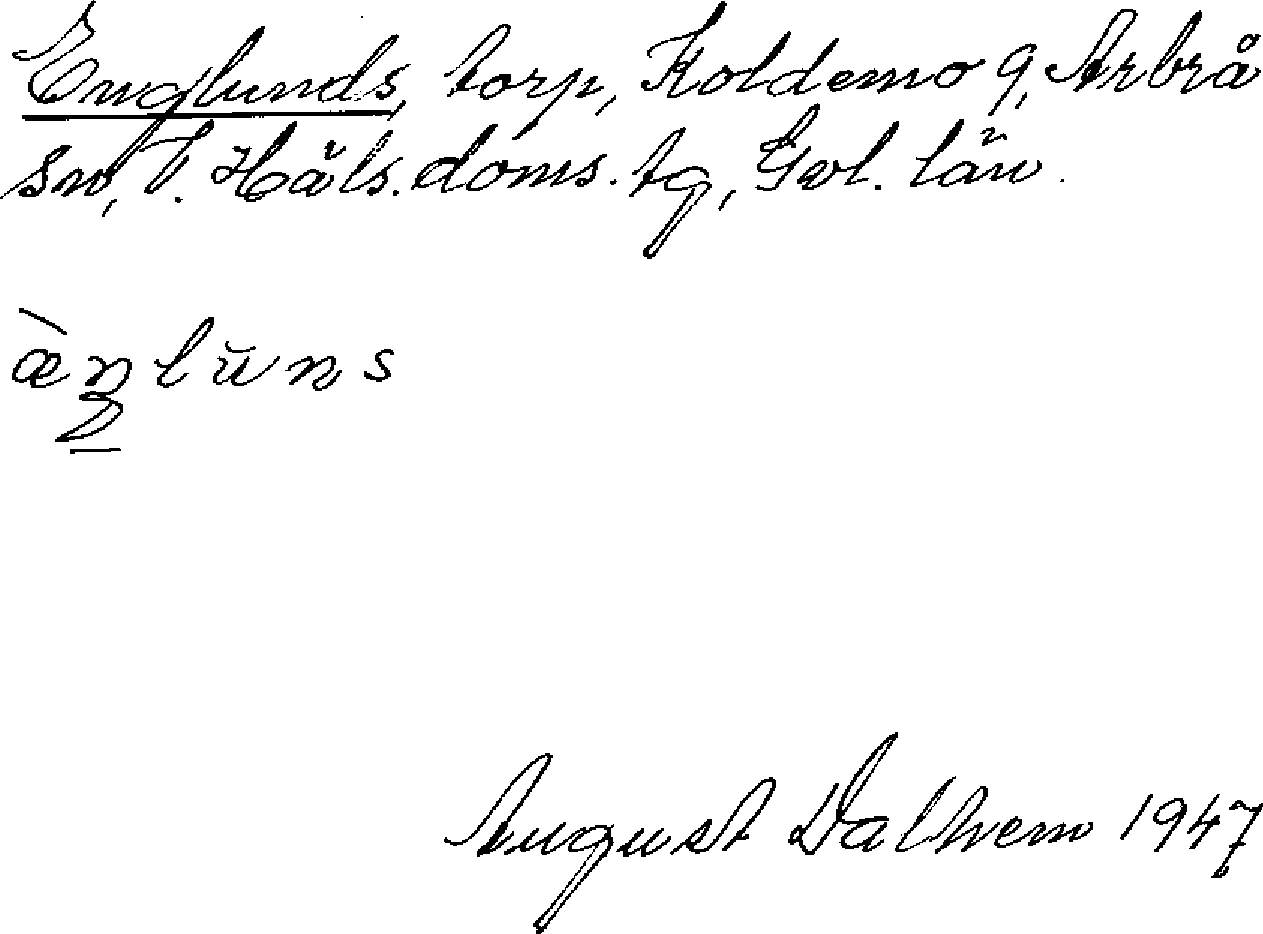 Englunds, torp, Koldemo g, Arbrå
sn, V. Häls. doms. tg, Gvl. län.
æ̀ŋlŭns
August Dalhem 1947